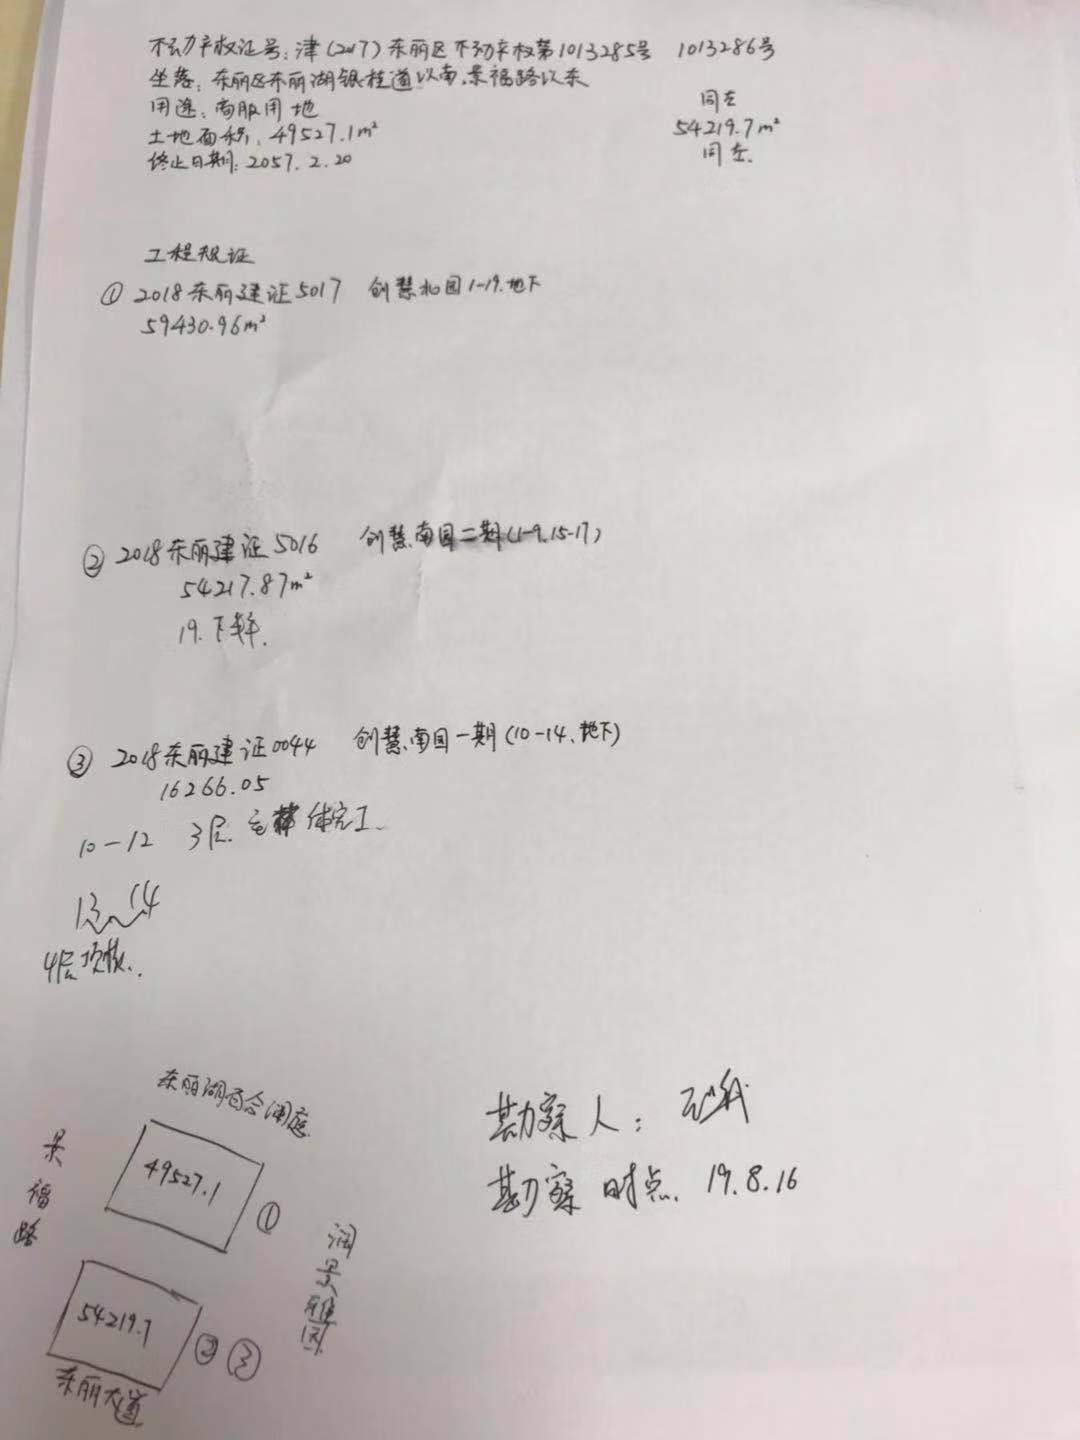 不动产权证号：津（2017）东丽区不动产权第1013285号 1013286号
坐落：东丽区东丽湖银桂道以南，景福路以东
用途：商服用地 同左
土地面积：49527.1m² 54219.7m²
终止日期：2057.2.20 同左.
工程规证
① 2018东丽建证5017 创慧北园1-19.地下
59430.96m²
② 2018东丽建证5016 创慧南园二期(1-9,15-17)
54217.87m²
19.下半年.
③ 2018东丽建证0044 创慧南园一期(10-14、地下)
16266.05
10-12 3层. 主体完工.
13 14
4层顶板..
东丽湖百合阑庭
景福路
49527.1
①
润景雅园
54219.7
② ③
东丽大道
勘察人：
勘察时点. 19.8.16